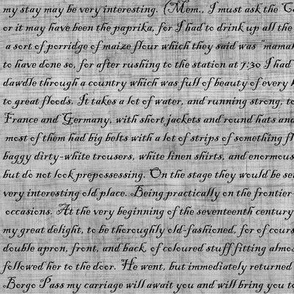 my stay may be very interesting. (Mem., I must ask the C
or it may have been the paprika, for I had to drink up all the
a sort of porridge of maize flour which they said was "mama
to have done so, for after rushing to the station at 7:30 I had
dawdle through a country which was full of beauty of every
to great floods. It takes a lot of water, and running strong, to
France and Germany, with short jackets and round hats and
most of them had big belts with a lot of strips of something fl
baggy dirty-white trousers, white linen shirts, and enormous
but do not look prepossessing. On the stage they would be se
very interesting old place. Being practically on the frontier
occasions. At the very beginning of the seventeenth century
my great delight, to be thoroughly old-fashioned, for of cours
double apron, front, and back, of coloured stuff fitting almo
followed her to the door. He went, but immediately returned
Borgo Pass my carriage will await you and will bring you to